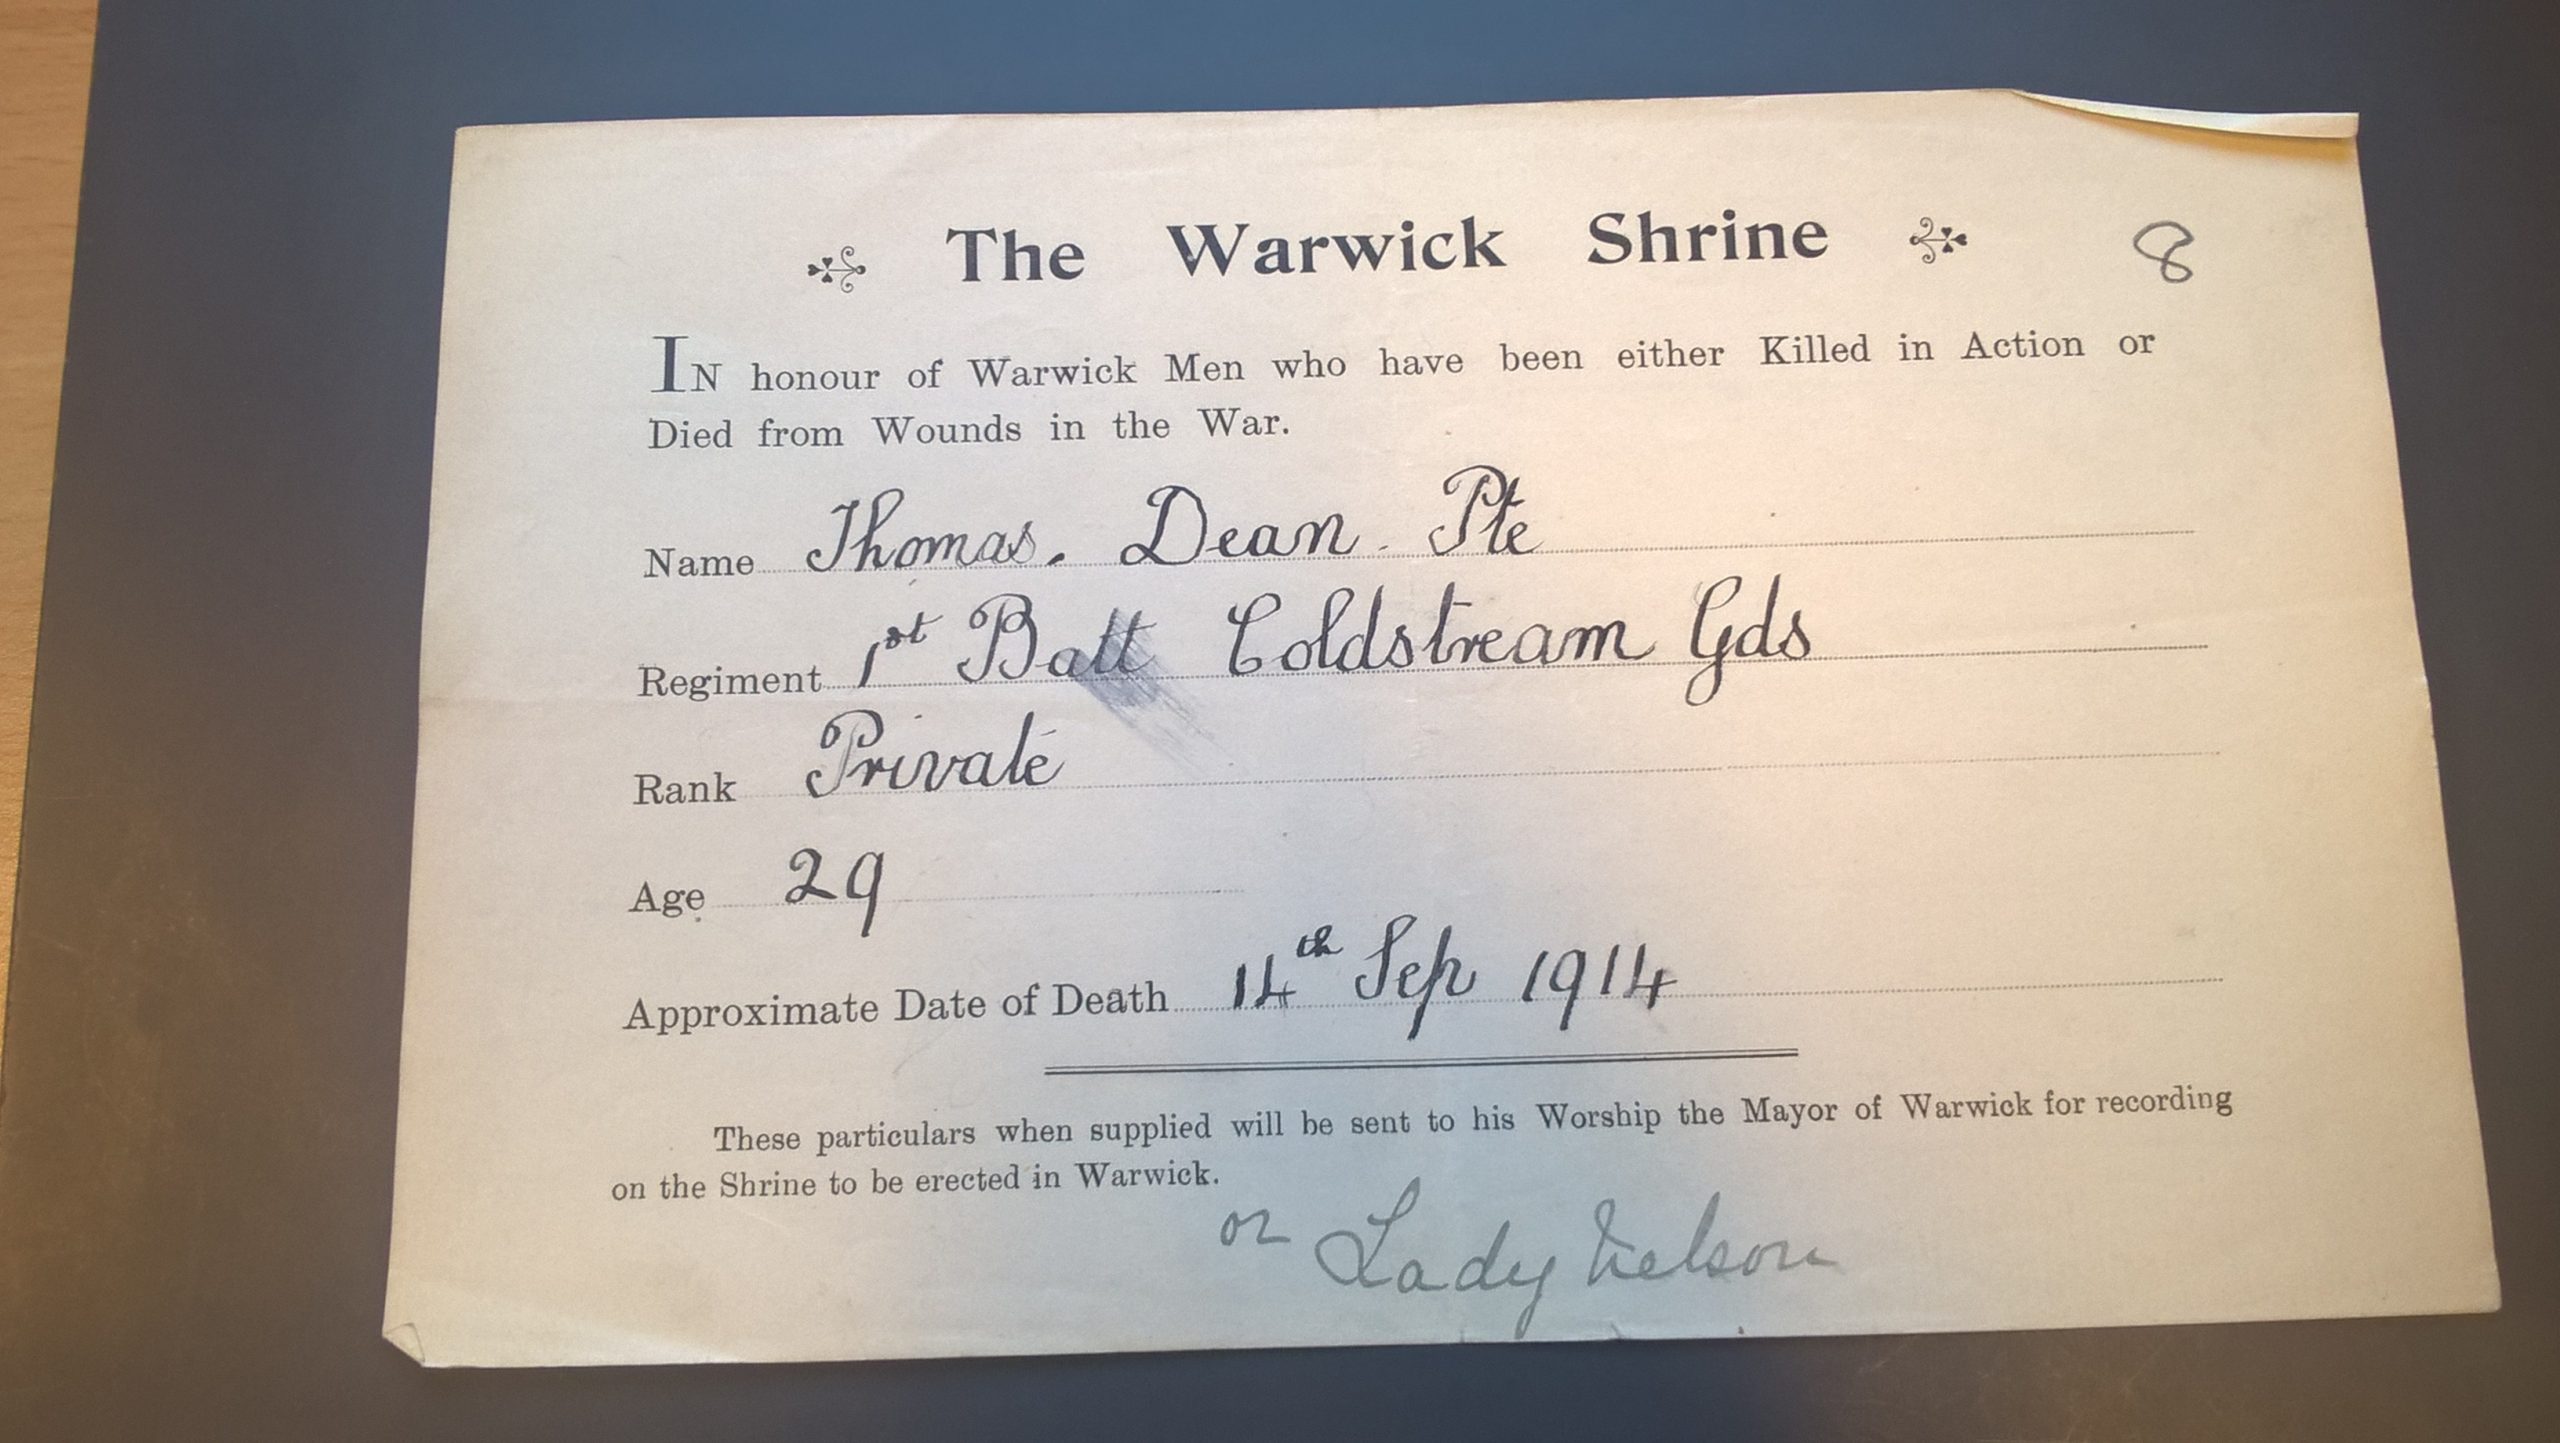 The Warwick Shrine
8
IN honour of Warwick Men who have been either Killed in Action or
Died from Wounds in the War.
Name Thomas. Dean. Pte
Regiment 1st Batt Coldstream Gds
Rank Private
Age 29
Approximate Date of Death 14th Sep 1914
These particulars when supplied will be sent to his Worship the Mayor of Warwick for recording
on the Shrine to be erected in Warwick.
or Lady Nelson